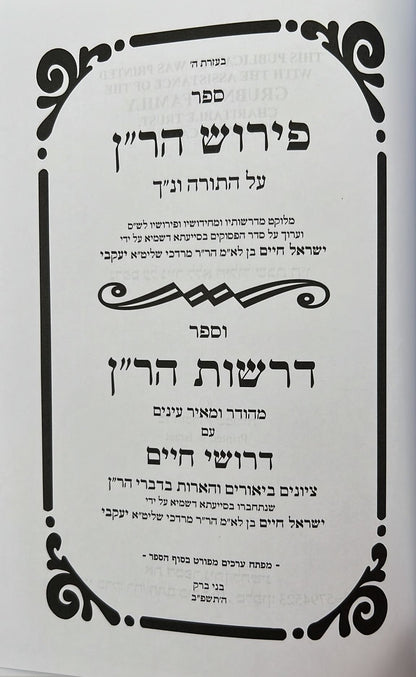 בעזרת ה'
ספר
פירוש הר״ן
על התורה ונ״ך
מלוקט מדרשותיו ומחידושיו ופירושיו לש״ס
וערוך על סדר הפסוקים בסייעתא דשמיא על ידי
ישראל חיים בן לא״מ הר״ר מרדכי שליט״א יעקבי
וספר
דרשות הר״ן
מהודר ומאיר עינים
עם
דרושי חיים
ציונים ביאורים והארות בדברי הר״ן
שנתחברו בסייעתא דשמיא על ידי
ישראל חיים בן לא״מ הר״ר מרדכי שליט״א יעקבי
- מפתח ערכים מפורט בסוף הספר -
בני ברק
ה'תשפ״ב